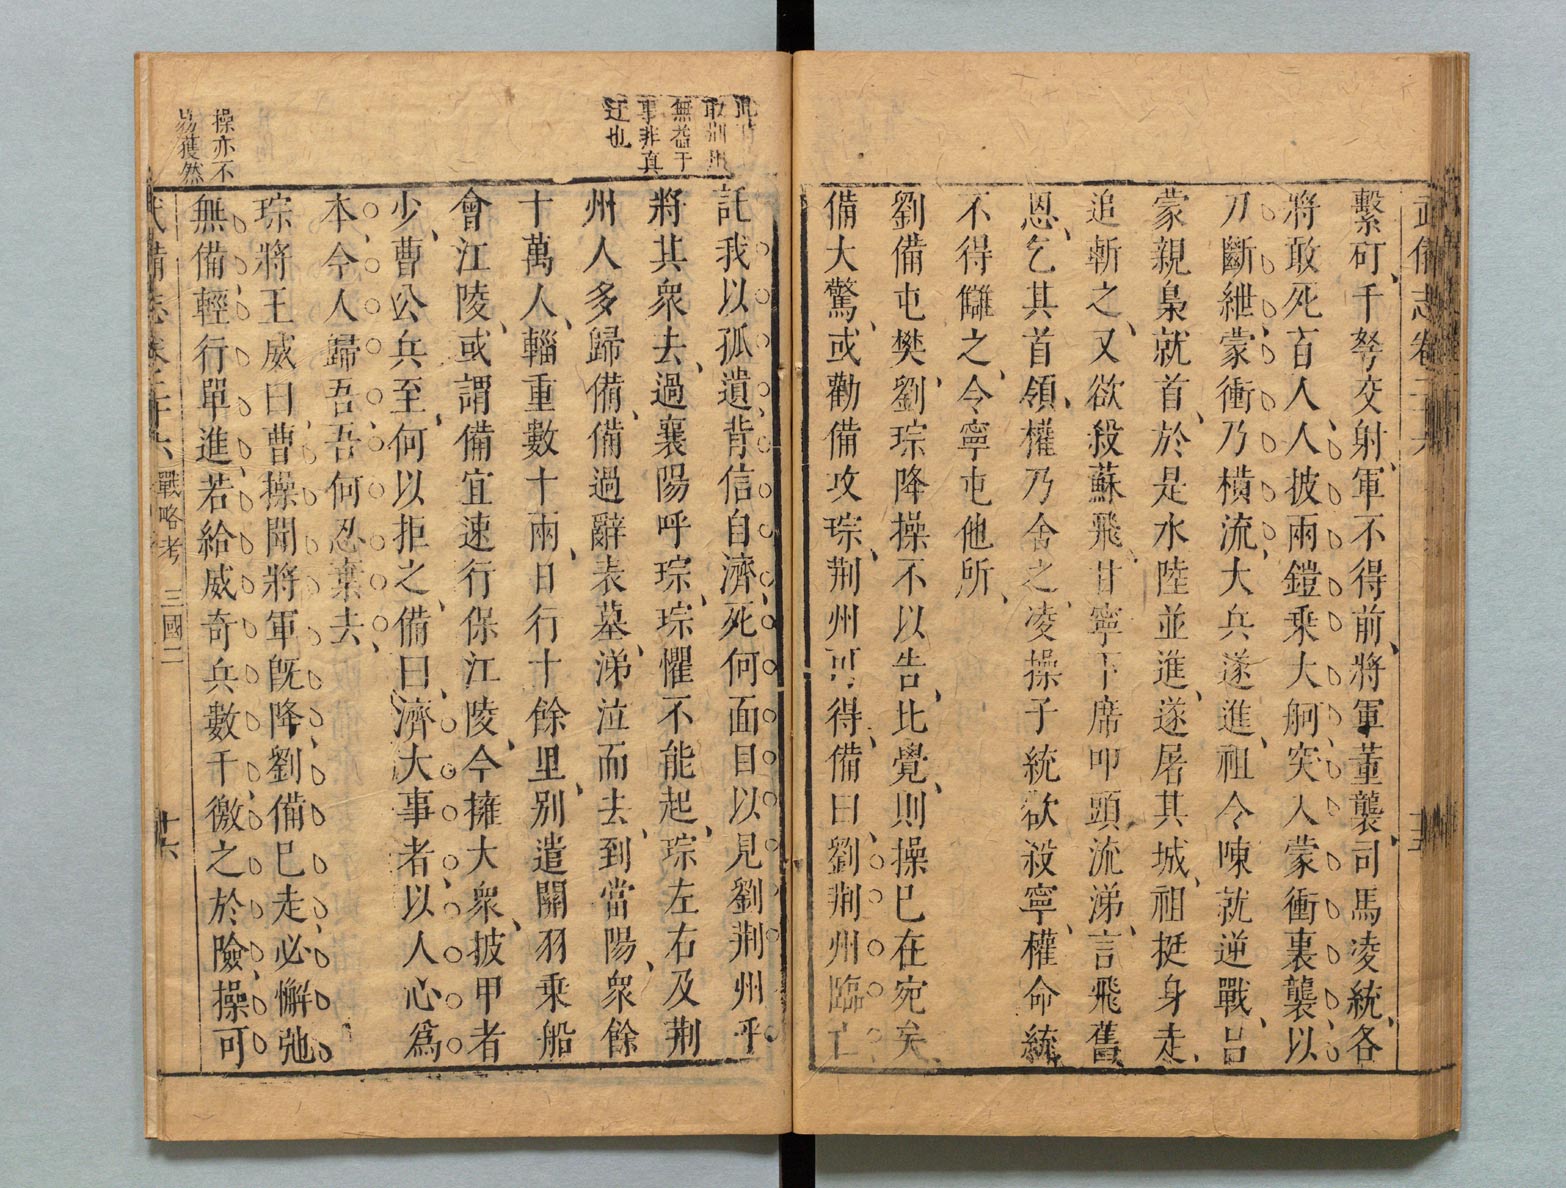 武備志卷二十六
十五
繫可、千弩交射、軍不得前、將軍董襲、司馬凌統、各
將敢死百人、人披兩鎧乗大舸突入蒙衝裏、襲以
刀斷紲、蒙衝乃横流、大兵遂進、祖令陳就逆戰、吕
蒙親梟就首、於是水陸並進、遂屠其城、祖挺身走、
追斬之、又欲殺蘇飛、甘寧下席叩頭流涕、言飛舊
恩、乞其首領、權乃舍之、凌操子統欲殺寧、權命統
不得讎之、令寧屯他所、
劉備屯樊、劉琮降操不以告、比覺、則操已在宛矣、
備大驚、或勸備攻琮、荆州可得、備曰、劉荆州臨亡
此時
取荆州
無益于
事非真
迂也
託我以孤遺、背信自濟、死何面目以見劉荆州乎、
將其衆去、過襄陽呼琮、琮懼不能起、琮左右及荆
州人多歸備、備過辭表墓、涕泣而去、到當陽、衆餘
十萬人、輜重數十兩、日行十餘里、别遣關羽乗船
會江陵、或謂備宜速行保江陵、今擁大衆、披甲者
少、曹公兵至、何以拒之、備曰、濟大事者、以人心爲
本、今人歸吾、吾何忍棄去、
操亦不
易獲然
琮將王威曰、曹操聞將軍既降、劉備已走、必懈弛
無備、輕行單進、若給威奇兵數千、徼之於險、操可
武備志卷二十六 戰略考 三國二
十六